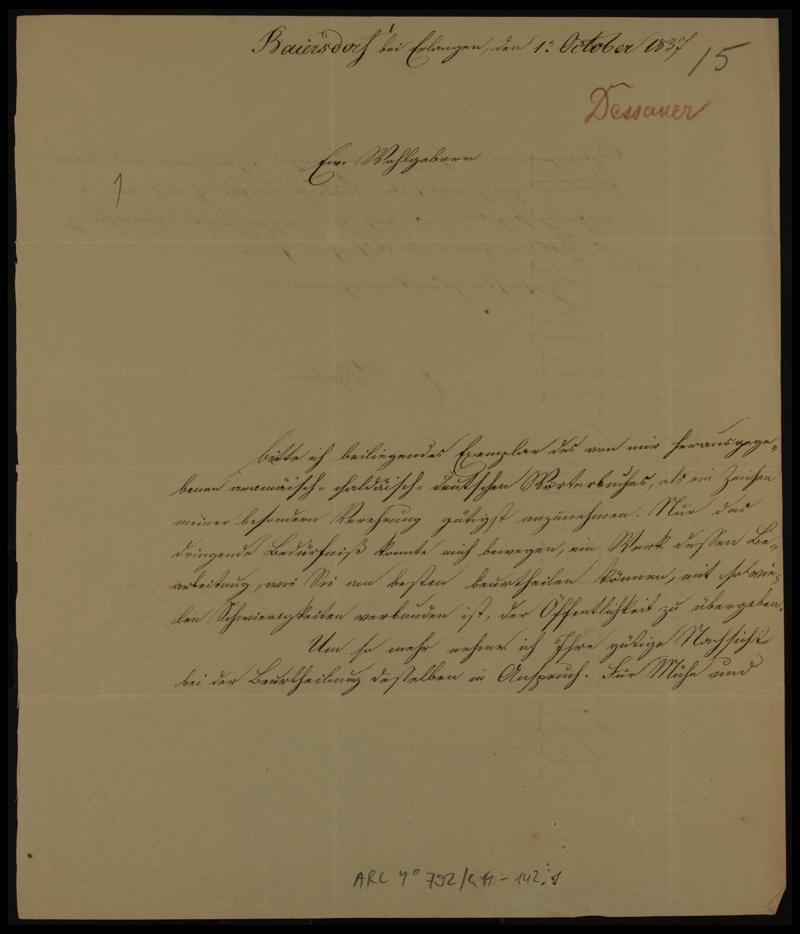 Baiersdorf bei Erlangen, den 13 October 1837
15
Dessauer
Ew. Wohlgeborn
1
bitte ich beiliegendes Exemplar des von mir herausgege-
benen aramäisch-chaldäisch-deutschen Wörterbuches, als ein Zeichen
meiner besondern Verehrung gütigst anzunehmen. Nur das
dringende Bedürfniß konnte mich bewegen, ein Werk dessen Be-
arbeitung, wie Sie am besten beurtheilen können, mit so vie-
len Schwierigkeiten verbunden ist, der Öffentlichkeit zu übergeben.
Um so mehr nehme ich Ihre gütige Nachsicht
bei der Beurtheilung desselben in Anspruch. Für Mühe und
ARC 4° 792/